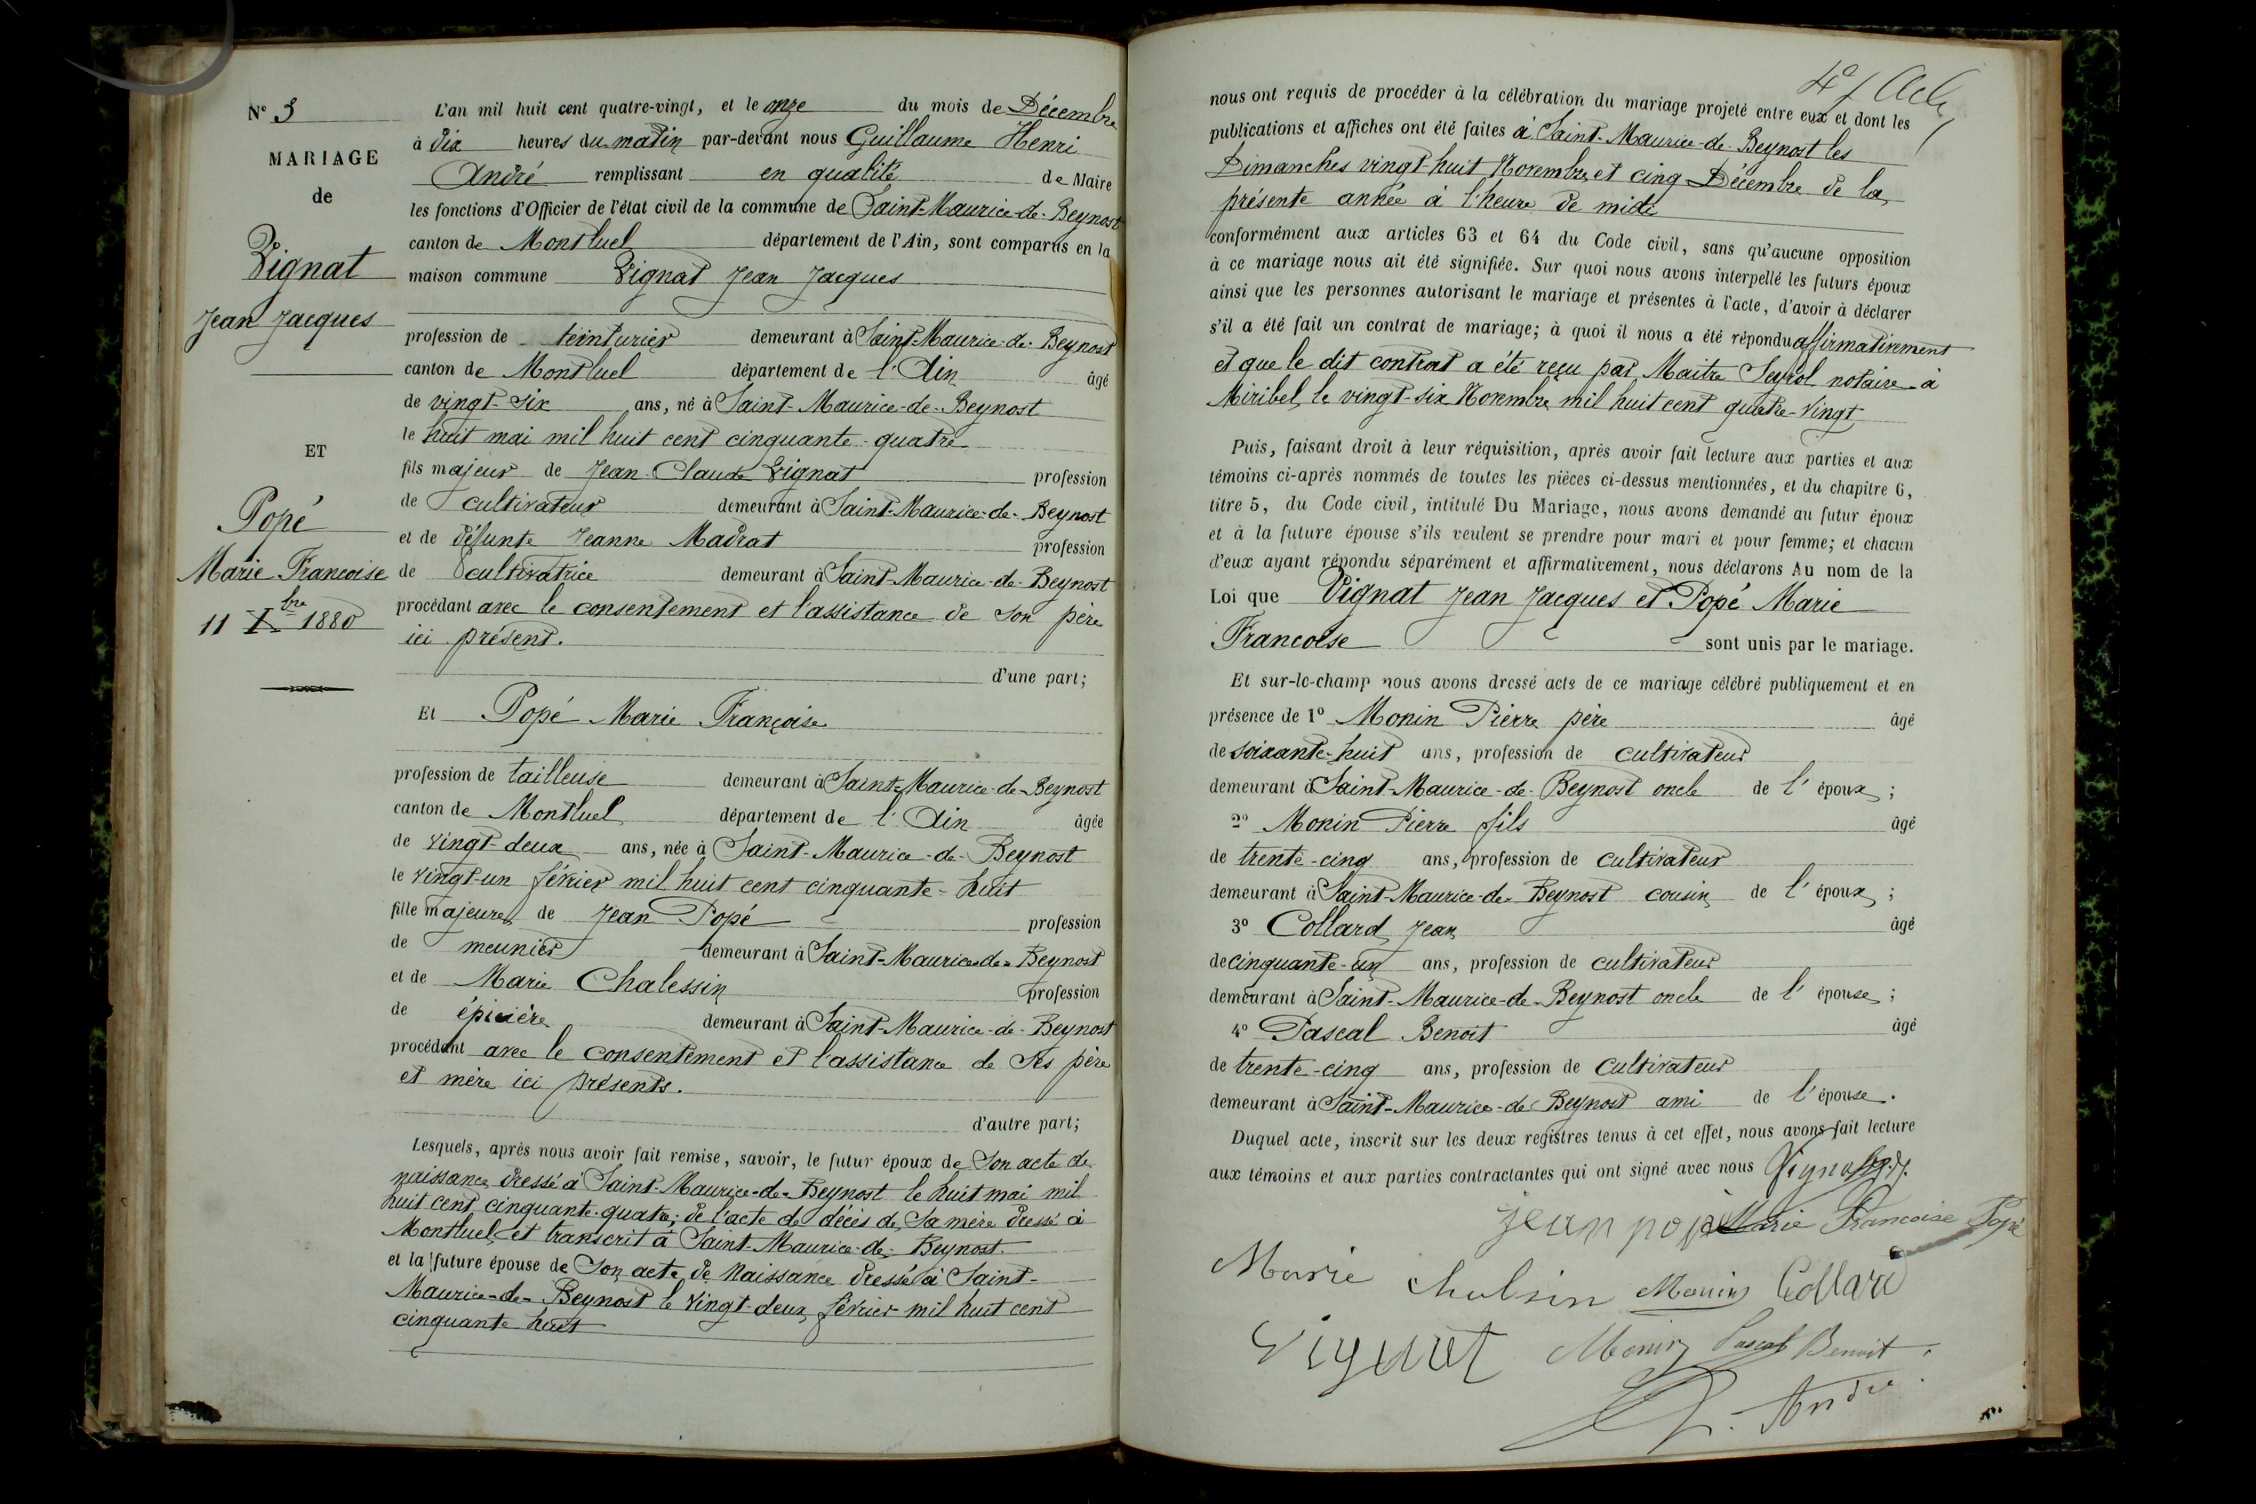 N° 3
MARIAGE
de
Vignat
Jean Jacques
ET
Popé
Marie Francoise
11 Xbre 1880
L'an mil huit cent quatre-vingt, et le onze du mois de Décembre
à dix heures du matin par-devant nous Guillaume Henri
André remplissant en qualité de Maire
les fonctions d'Officier de l'état civil de la commune de Saint-Maurice-de-Beynost
canton de Montluel département de l'Ain, sont comparus en la
maison commune Vignat Jean Jacques
profession de teinturier demeurant à Saint-Maurice-de-Beynost
canton de Montluel département de l'Ain âgé
de vingt-six ans, né à Saint-Maurice-de-Beynost
le huit mai mil huit cent cinquante-quatre
fils majeur de Jean-Claude Vignat profession
de cultivateur demeurant à Saint-Maurice-de-Beynost
et de défunte Jeanne Madrat profession
de cultivatrice demeurant à Saint-Maurice-de-Beynost
procédant avec le consentement et l'assistance de son père
ici présent.
d'une part;
Et Popé Marie Françoise
profession de tailleuse demeurant à Saint-Maurice-de-Beynost
canton de Montluel département de l'Ain âgée
de vingt-deux ans, née à Saint-Maurice-de-Beynost
le vingt-un février mil huit cent cinquante-huit
fille majeure de Jean Popé profession
de meunier demeurant à Saint-Maurice-de-Beynost
et de Marie Chalessin profession
de épicière demeurant à Saint-Maurice-de-Beynost
procédant avec le consentement et l'assistance de ses père
et mère ici présents.
d'autre part;
Lesquels, après nous avoir fait remise, savoir, le futur époux de Son acte de
naissance dressé à Saint-Maurice-de-Beynost le huit mai mil
huit cent cinquante-quatre; de l'acte de décès de sa mère dressé à
Montluel et transcrit à Saint-Maurice-de-Beynost.
et la future épouse de Son acte de Naissance dressé à Saint-
Maurice-de-Beynost le vingt-deux février mil huit cent
cinquante huit
4e Acte
nous ont requis de procéder à la célébration du mariage projeté entre eux et dont les
publications et affiches ont été faites à Saint-Maurice-de-Beynost les
Dimanches vingt-huit Novembre et cinq Décembre de la
présente année à l'heure de midi
conformément aux articles 63 et 64 du Code civil, sans qu'aucune opposition
à ce mariage nous ait été signifiée. Sur quoi nous avons interpellé les futurs époux
ainsi que les personnes autorisant le mariage et présentes à l'acte, d'avoir à déclarer
s'il a été fait un contrat de mariage; à quoi il nous a été répondu affirmativement
et que le dit contrat a été reçu par Maitre Seyrol notaire à
Miribel, le vingt-six Novembre mil huit cent quatre-vingt
Puis, faisant droit à leur réquisition, après avoir fait lecture aux parties et aux
témoins ci-après nommés de toutes les pièces ci-dessus mentionnées, et du chapitre 6,
titre 5, du Code civil, intitulé Du Mariage, nous avons demandé au futur époux
et à la future épouse s'ils veulent se prendre pour mari et pour femme; et chacun
d'eux ayant répondu séparément et affirmativement, nous déclarons Au nom de la
Loi que Vignat Jean Jacques et Popé Marie
Francoise sont unis par le mariage.
Et sur-le-champ nous avons dressé acte de ce mariage célébré publiquement et en
présence de 1° Monin Pierre père âgé
de soixante-huit ans, profession de cultivateur
demeurant à Saint-Maurice-de-Beynost oncle de l'époux;
2° Monin Pierre fils âgé
de trente-cinq ans, profession de cultivateur
demeurant à Saint-Maurice-de-Beynost cousin de l'époux;
3° Collard Jean âgé
de cinquante-un ans, profession de cultivateur
demeurant à Saint-Maurice-de-Beynost oncle de l'épouse;
4° Pascal Benoit âgé
de trente-cinq ans, profession de cultivateur
demeurant à Saint-Maurice-de-Beynost ami de l'épouse.
Duquel acte, inscrit sur les deux registres tenus à cet effet, nous avons fait lecture
aux témoins et aux parties contractantes qui ont signé avec nous Vignat J.J.
jean popé Marie Francoise Popé
Marie chalsin Monin Collard
Vignat Monin Pascal Benoit
G. André